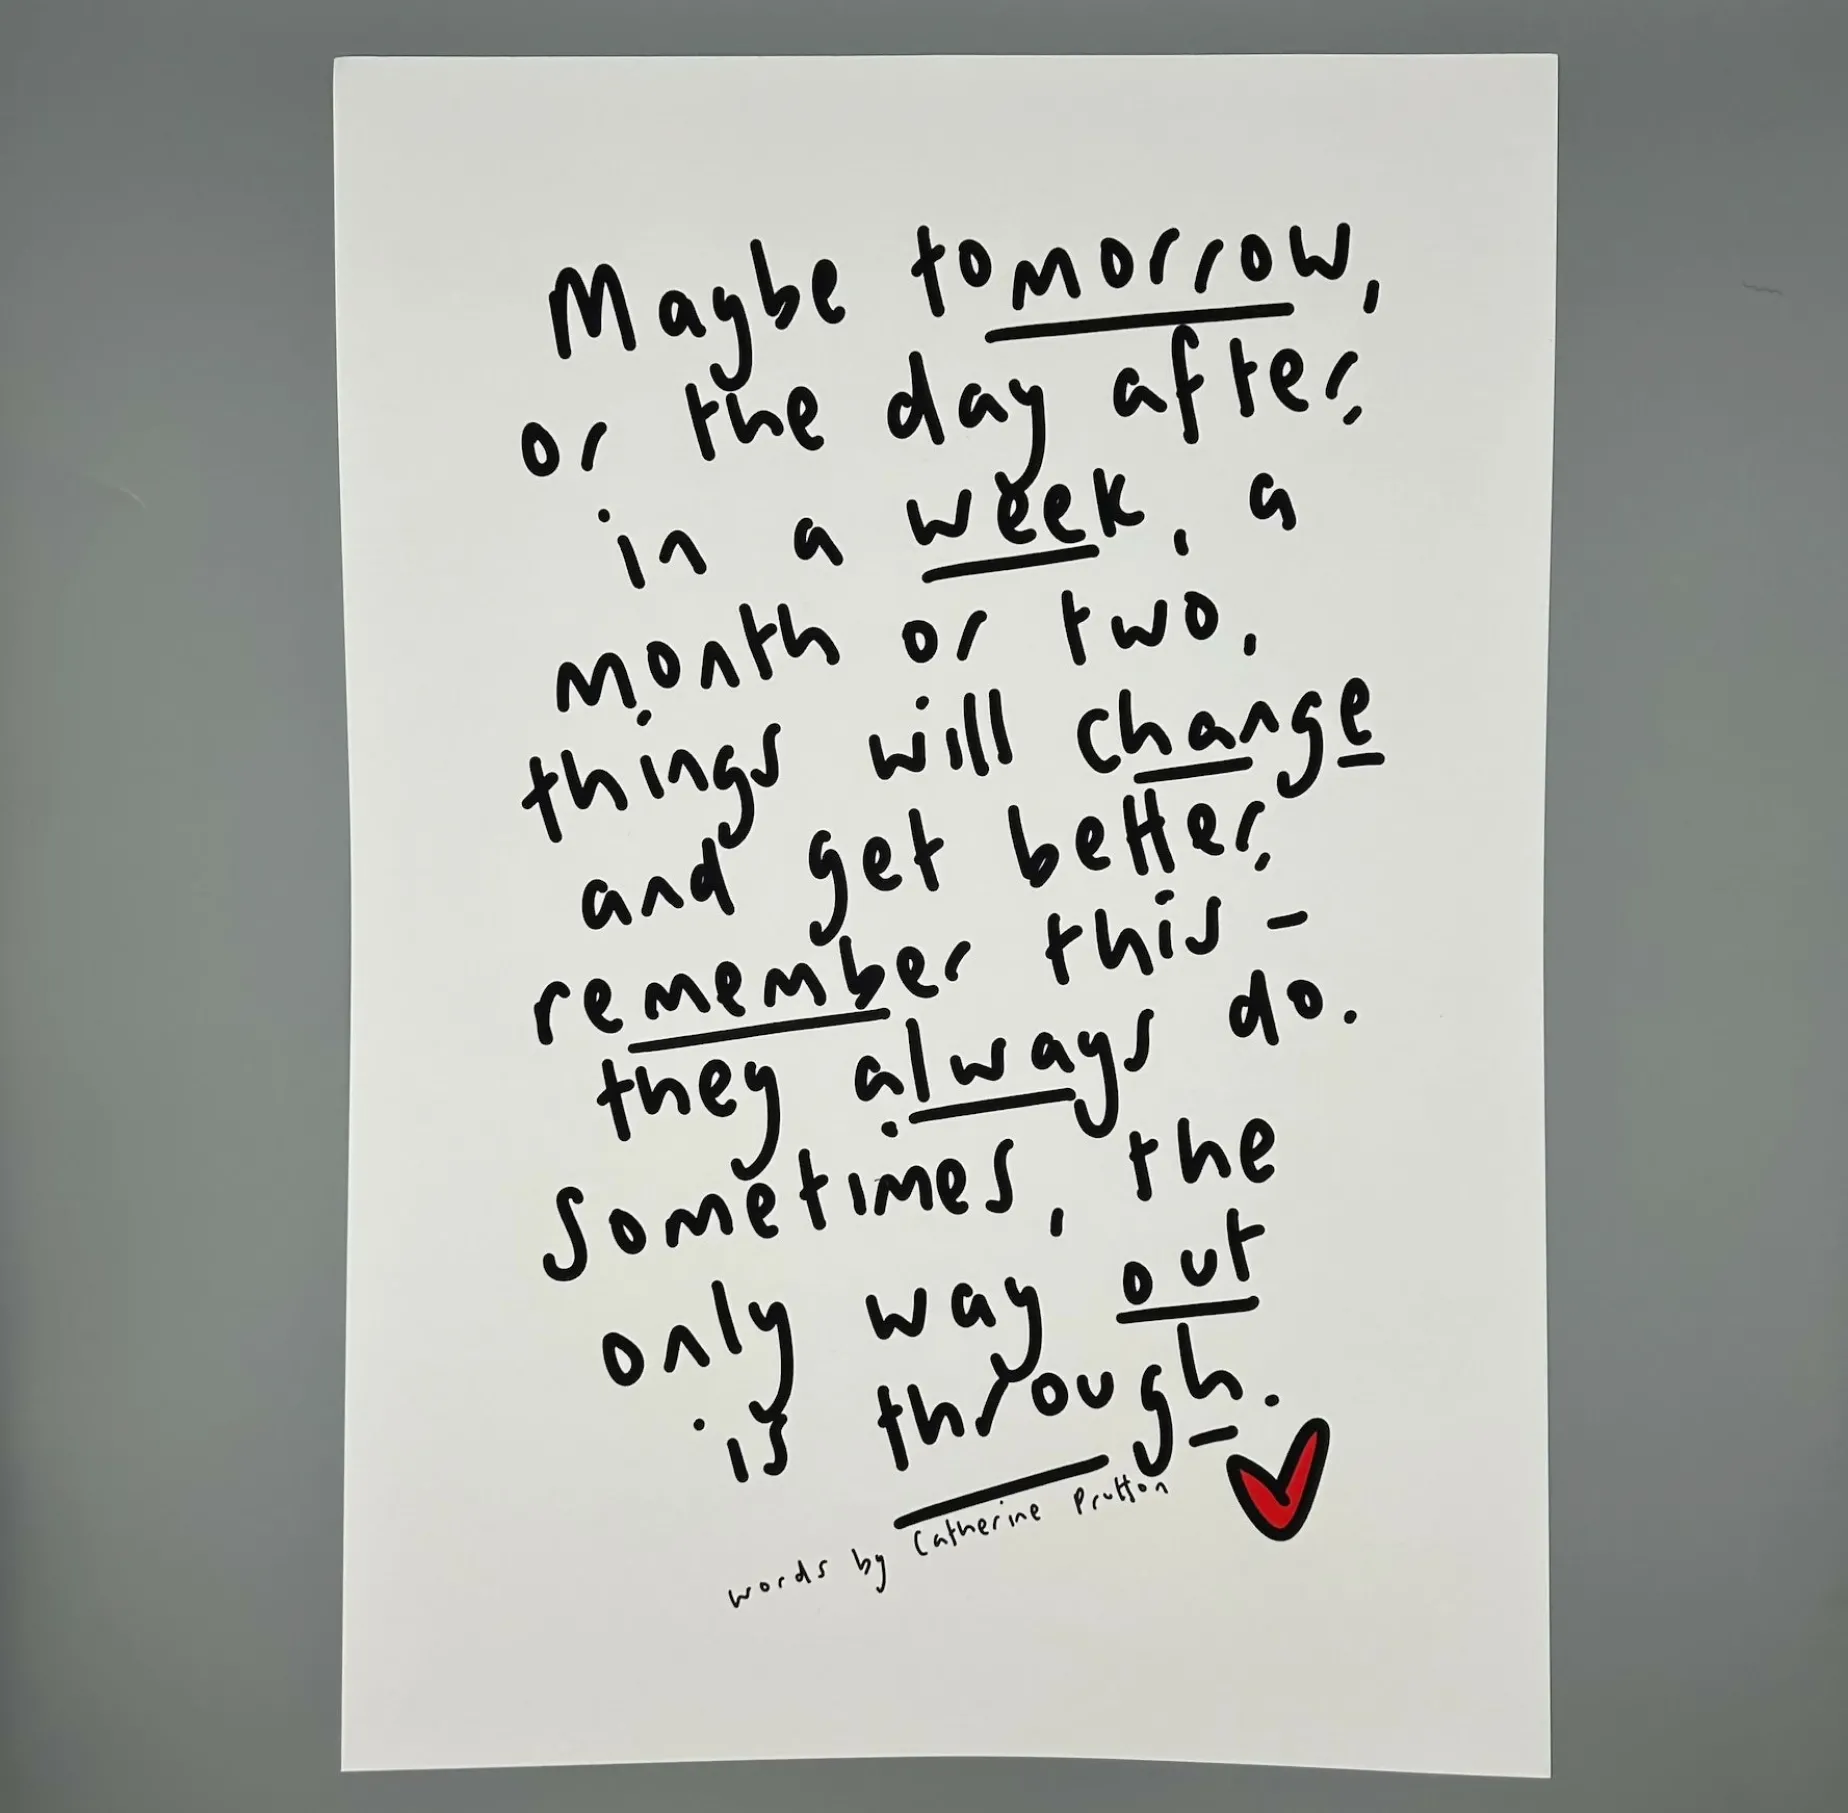 Maybe tomorrow,
or the day after,
in a week, a
month or two,
things will change
and get better,
remember this -
they always do.
Sometimes, the
only way out
is through.
words by Catherine Prutton